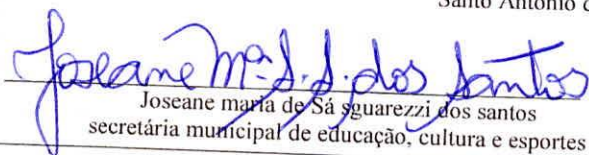 Santo Antônio d
Joseane Mª. S. S. dos Santos
Joseane maria de Sá sguarezzi dos santos
secretária municipal de educação, cultura e esportes